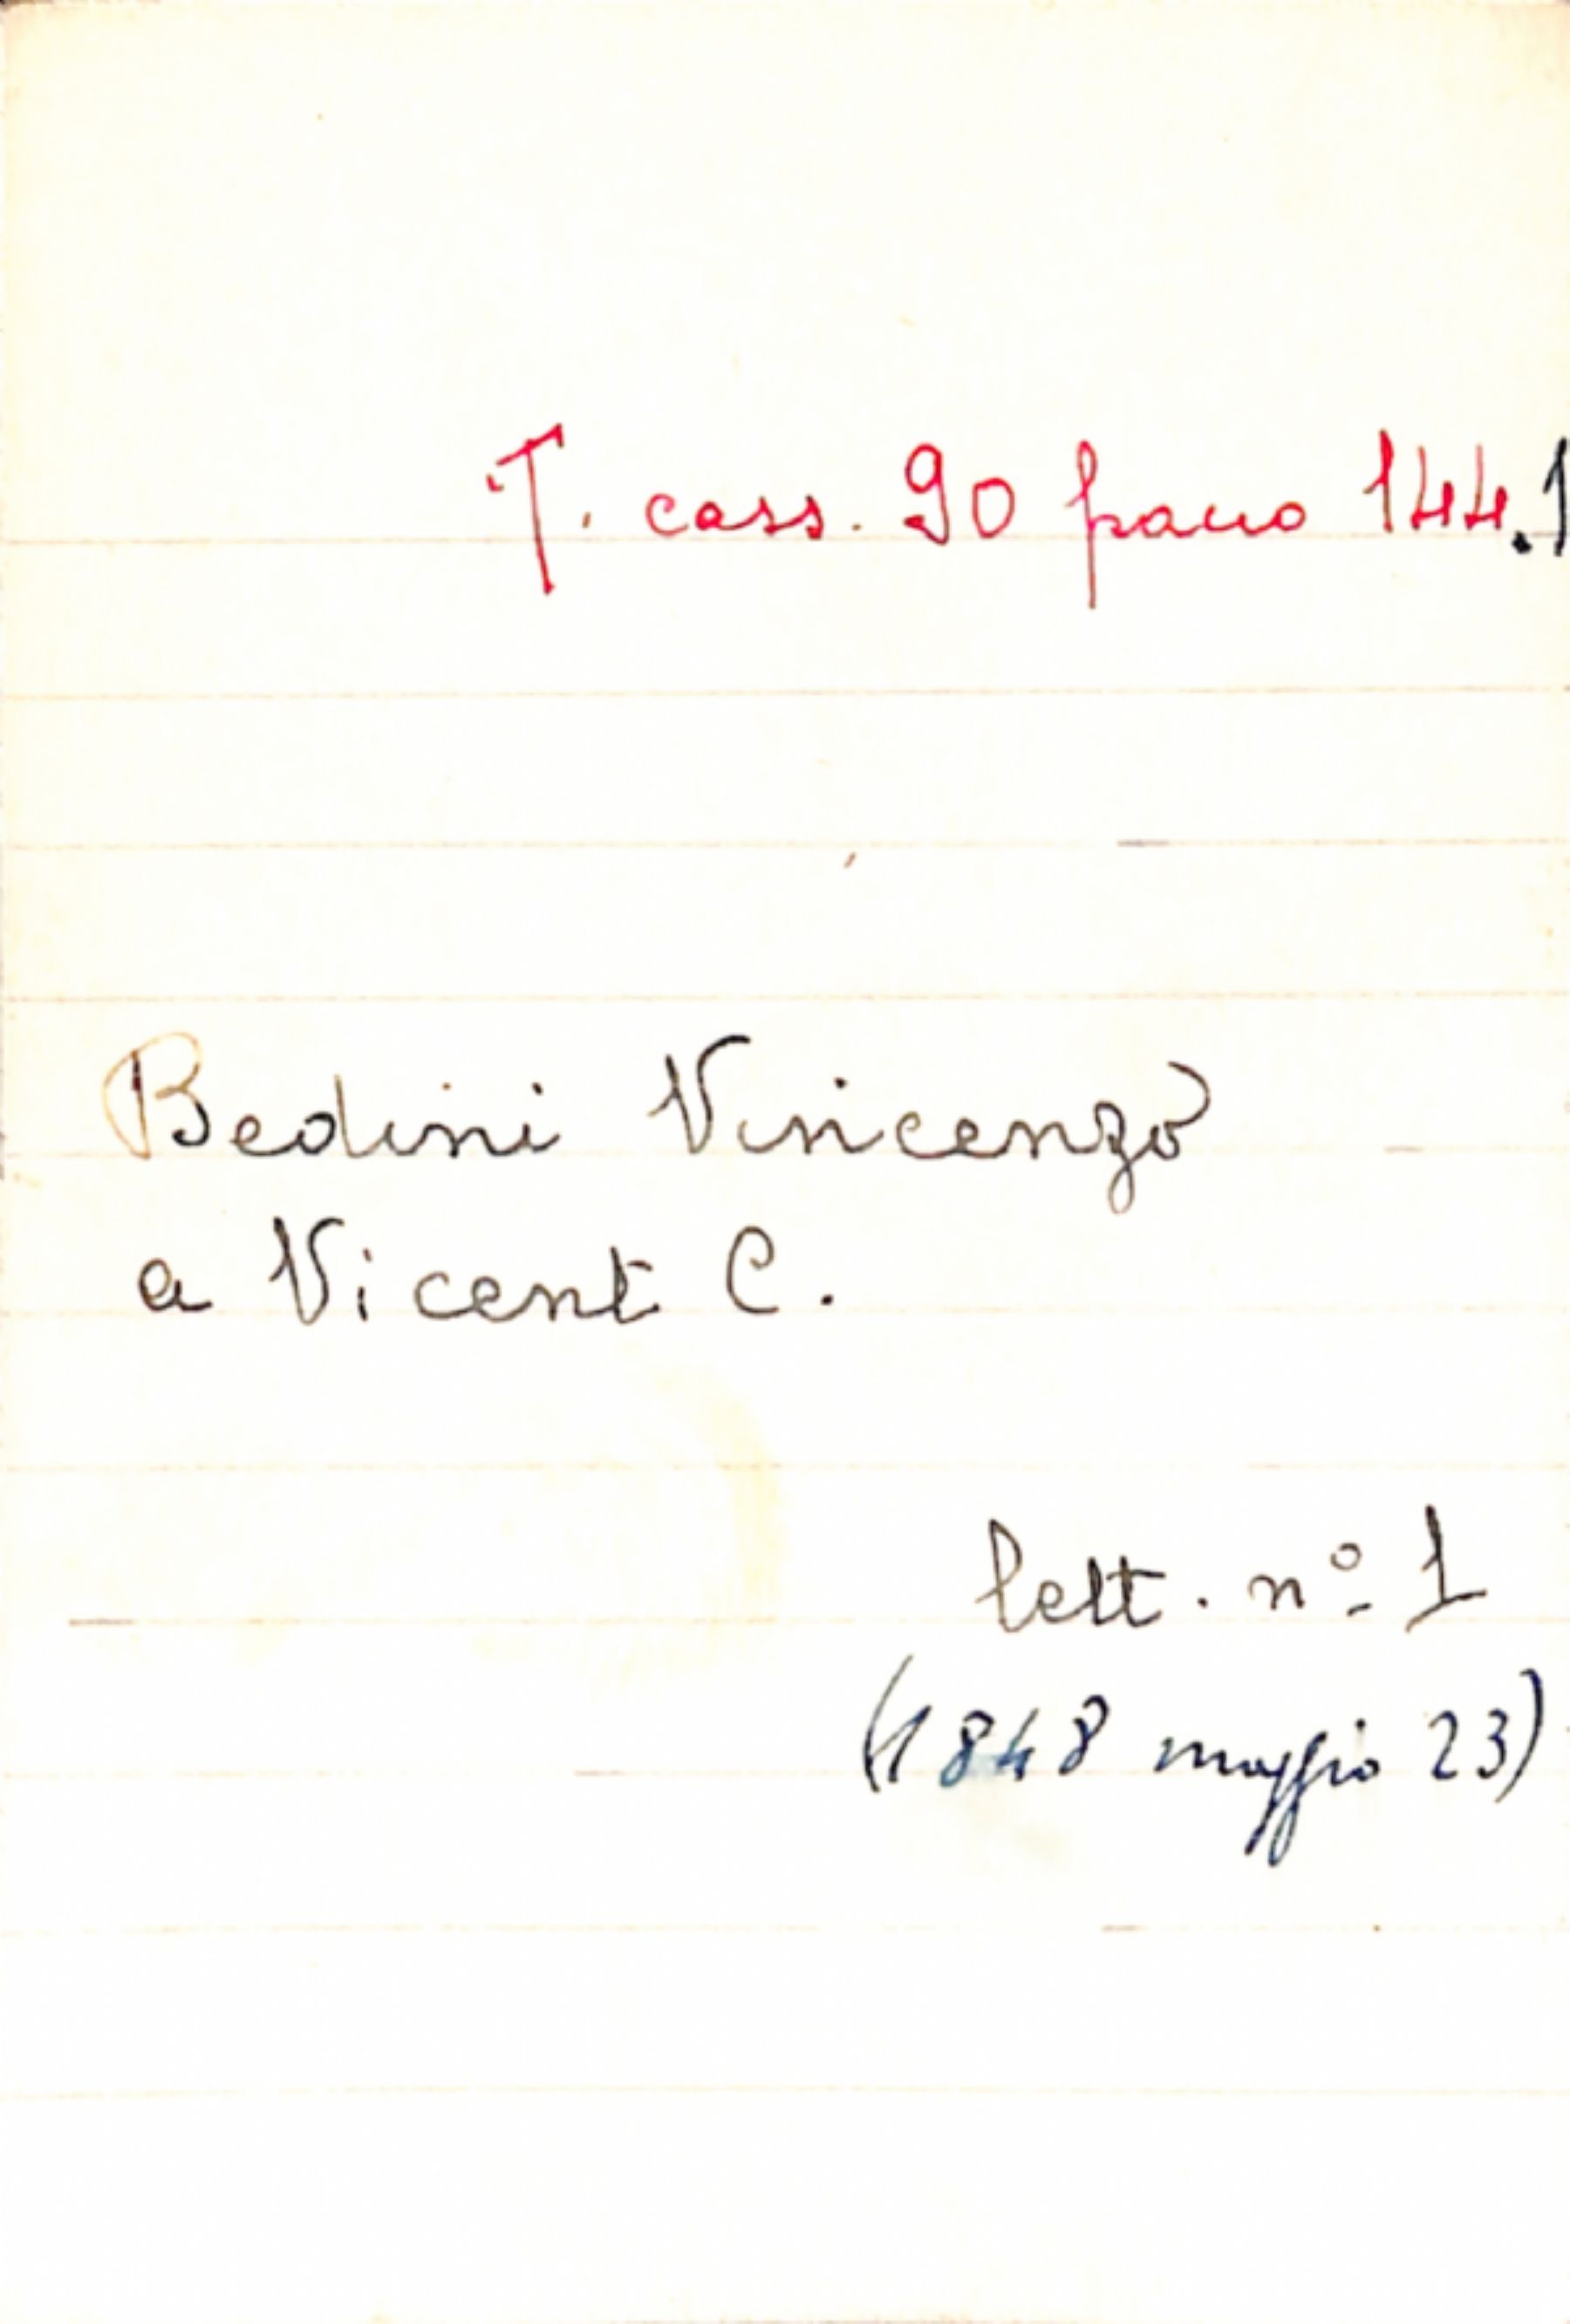 T. cass. 90 pacco 144.1
Bedini Vincenzo
a Vicent C.
lett. nº 1
(1848 maggio 23)